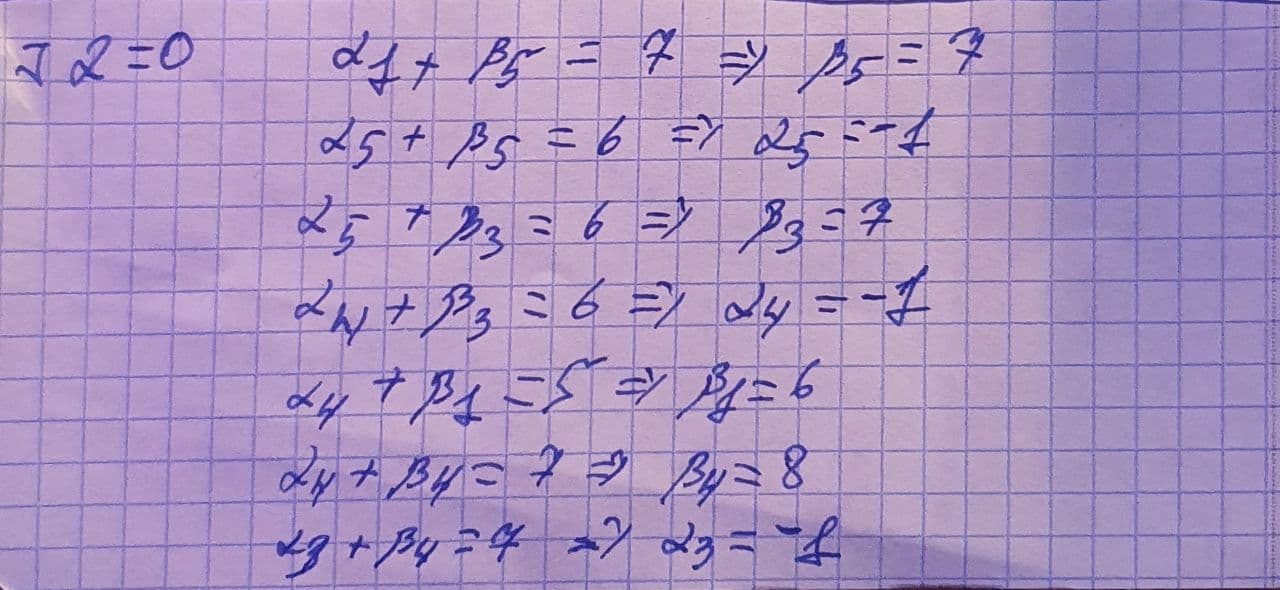 I α=0 α1 + β5 = 7 => β5 = 7
α5 + β5 = 6 => α5 = -1
α5 + β3 = 6 => β3 = 7
α4 + β3 = 6 => α4 = -1
α4 + β1 = 5 => β1 = 6
α4 + β4 = 7 => β4 = 8
α3 + β4 = 7 => α3 = -1